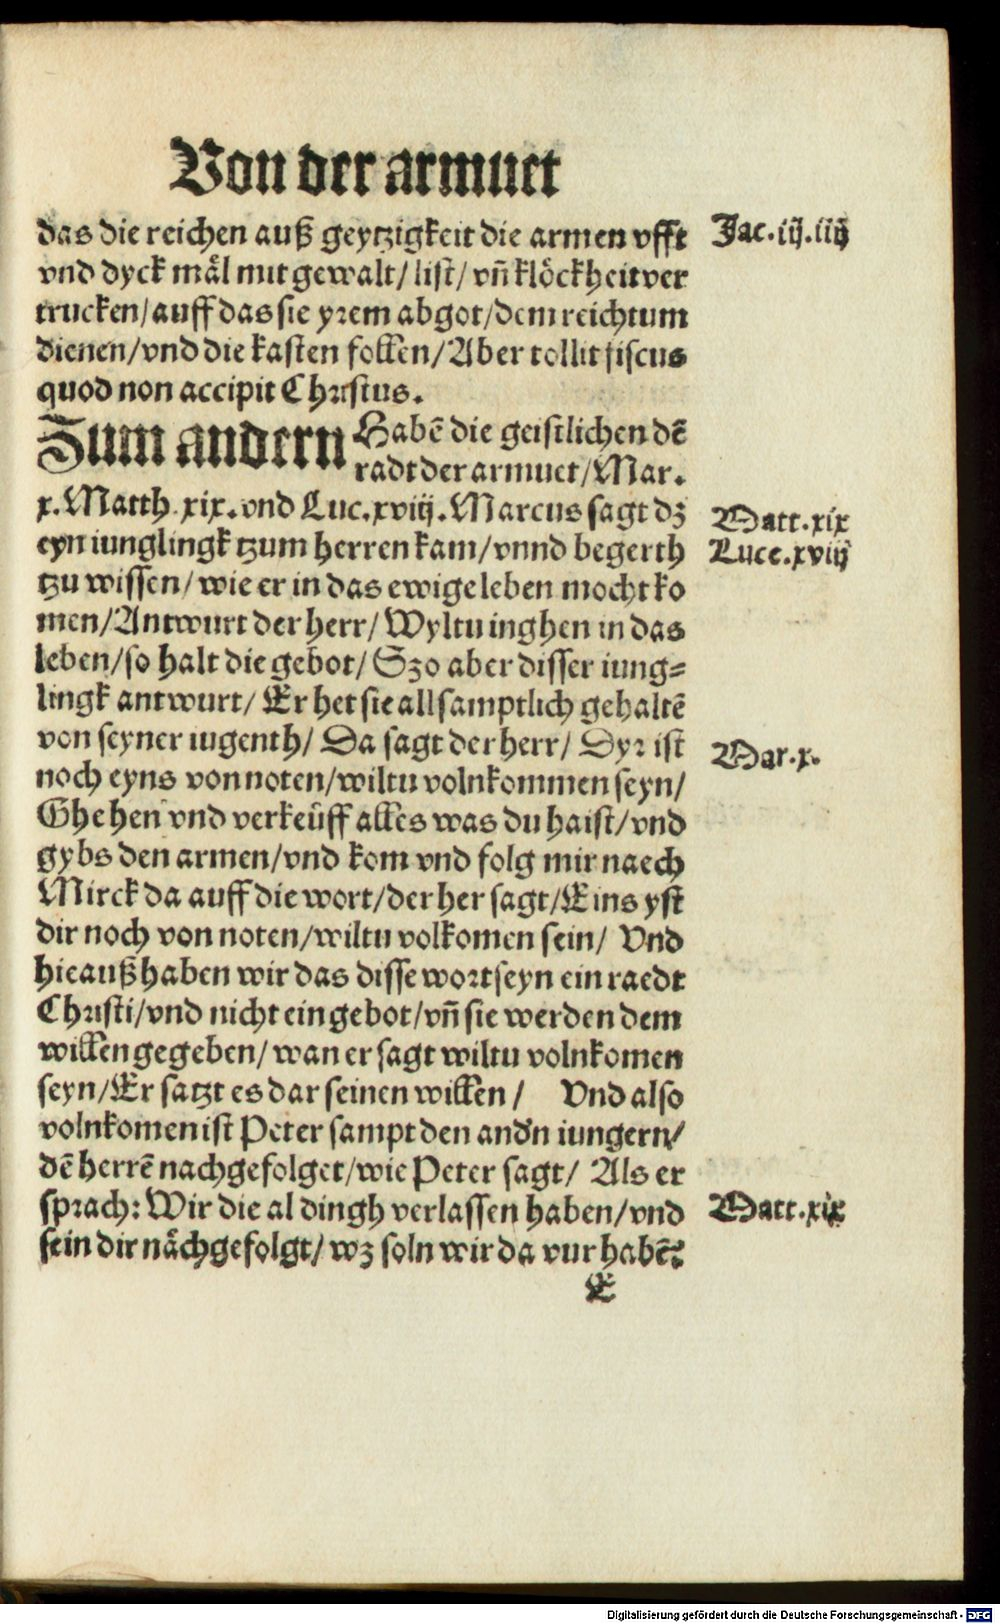 Von der armuet
das die reichen auß geytzigkeit die armen vfft
vnd dyck mål mit gewalt/ list/ vñ klöckheit ver
trucken/ auff das sie yrem abgot/ dem reichtum
dienen/ vnd die kasten follen/ Aber tollit fiscus
quod non accipit Christus.
Zum andern Habē die geistlichen dē
radt der armuet/ Mar.
x. Matth. xix. vnd Luc. xviij. Marcus sagt dz
eyn iunglingk tzum herren kam/ vnnd begerth
tzu wissen/ wie er in das ewige leben mocht ko
men/ Antwurt der herr/ Wyltu inghen in das
leben/ so halt die gebot/ Szo aber disser iung=
lingk antwurt/ Er het sie all samptlich gehaltē
von seyner iugenth/ Da sagt der herr/ Dyr ist
noch eyns von noten/ wiltu volnkommen seyn/
Ghe hen vnd verkeüff alles was du haist/ vnd
gybs den armen/ vnd kom vnd folg mir naech
Mirck da auff die wort/ der her sagt/ Eins yst
dir noch von noten/ wiltu volkomen sein/ Vnd
hieauß haben wir das disse wort seyn ein raedt
Christi/ vnd nicht ein gebot/ vñ sie werden dem
willen gegeben/ wan er sagt wiltu volnkomen
seyn/ Er satzt es dar seinen willen/ Vnd also
volnkomen ist Peter sampt den andn̄ iungern/
dē herrē nachgefolget/ wie Peter sagt/ Als er
sprach: Wir die al dingh verlassen haben/ vnd
sein dir nåchgefolgt/ wz soln wir da vur habē?
E
Jac. ij. iiij
Matt. xix
Luce. xviij
Mar. x.
Matt. xix
Digitalisierung gefördert durch die Deutsche Forschungsgemeinschaft - DFG